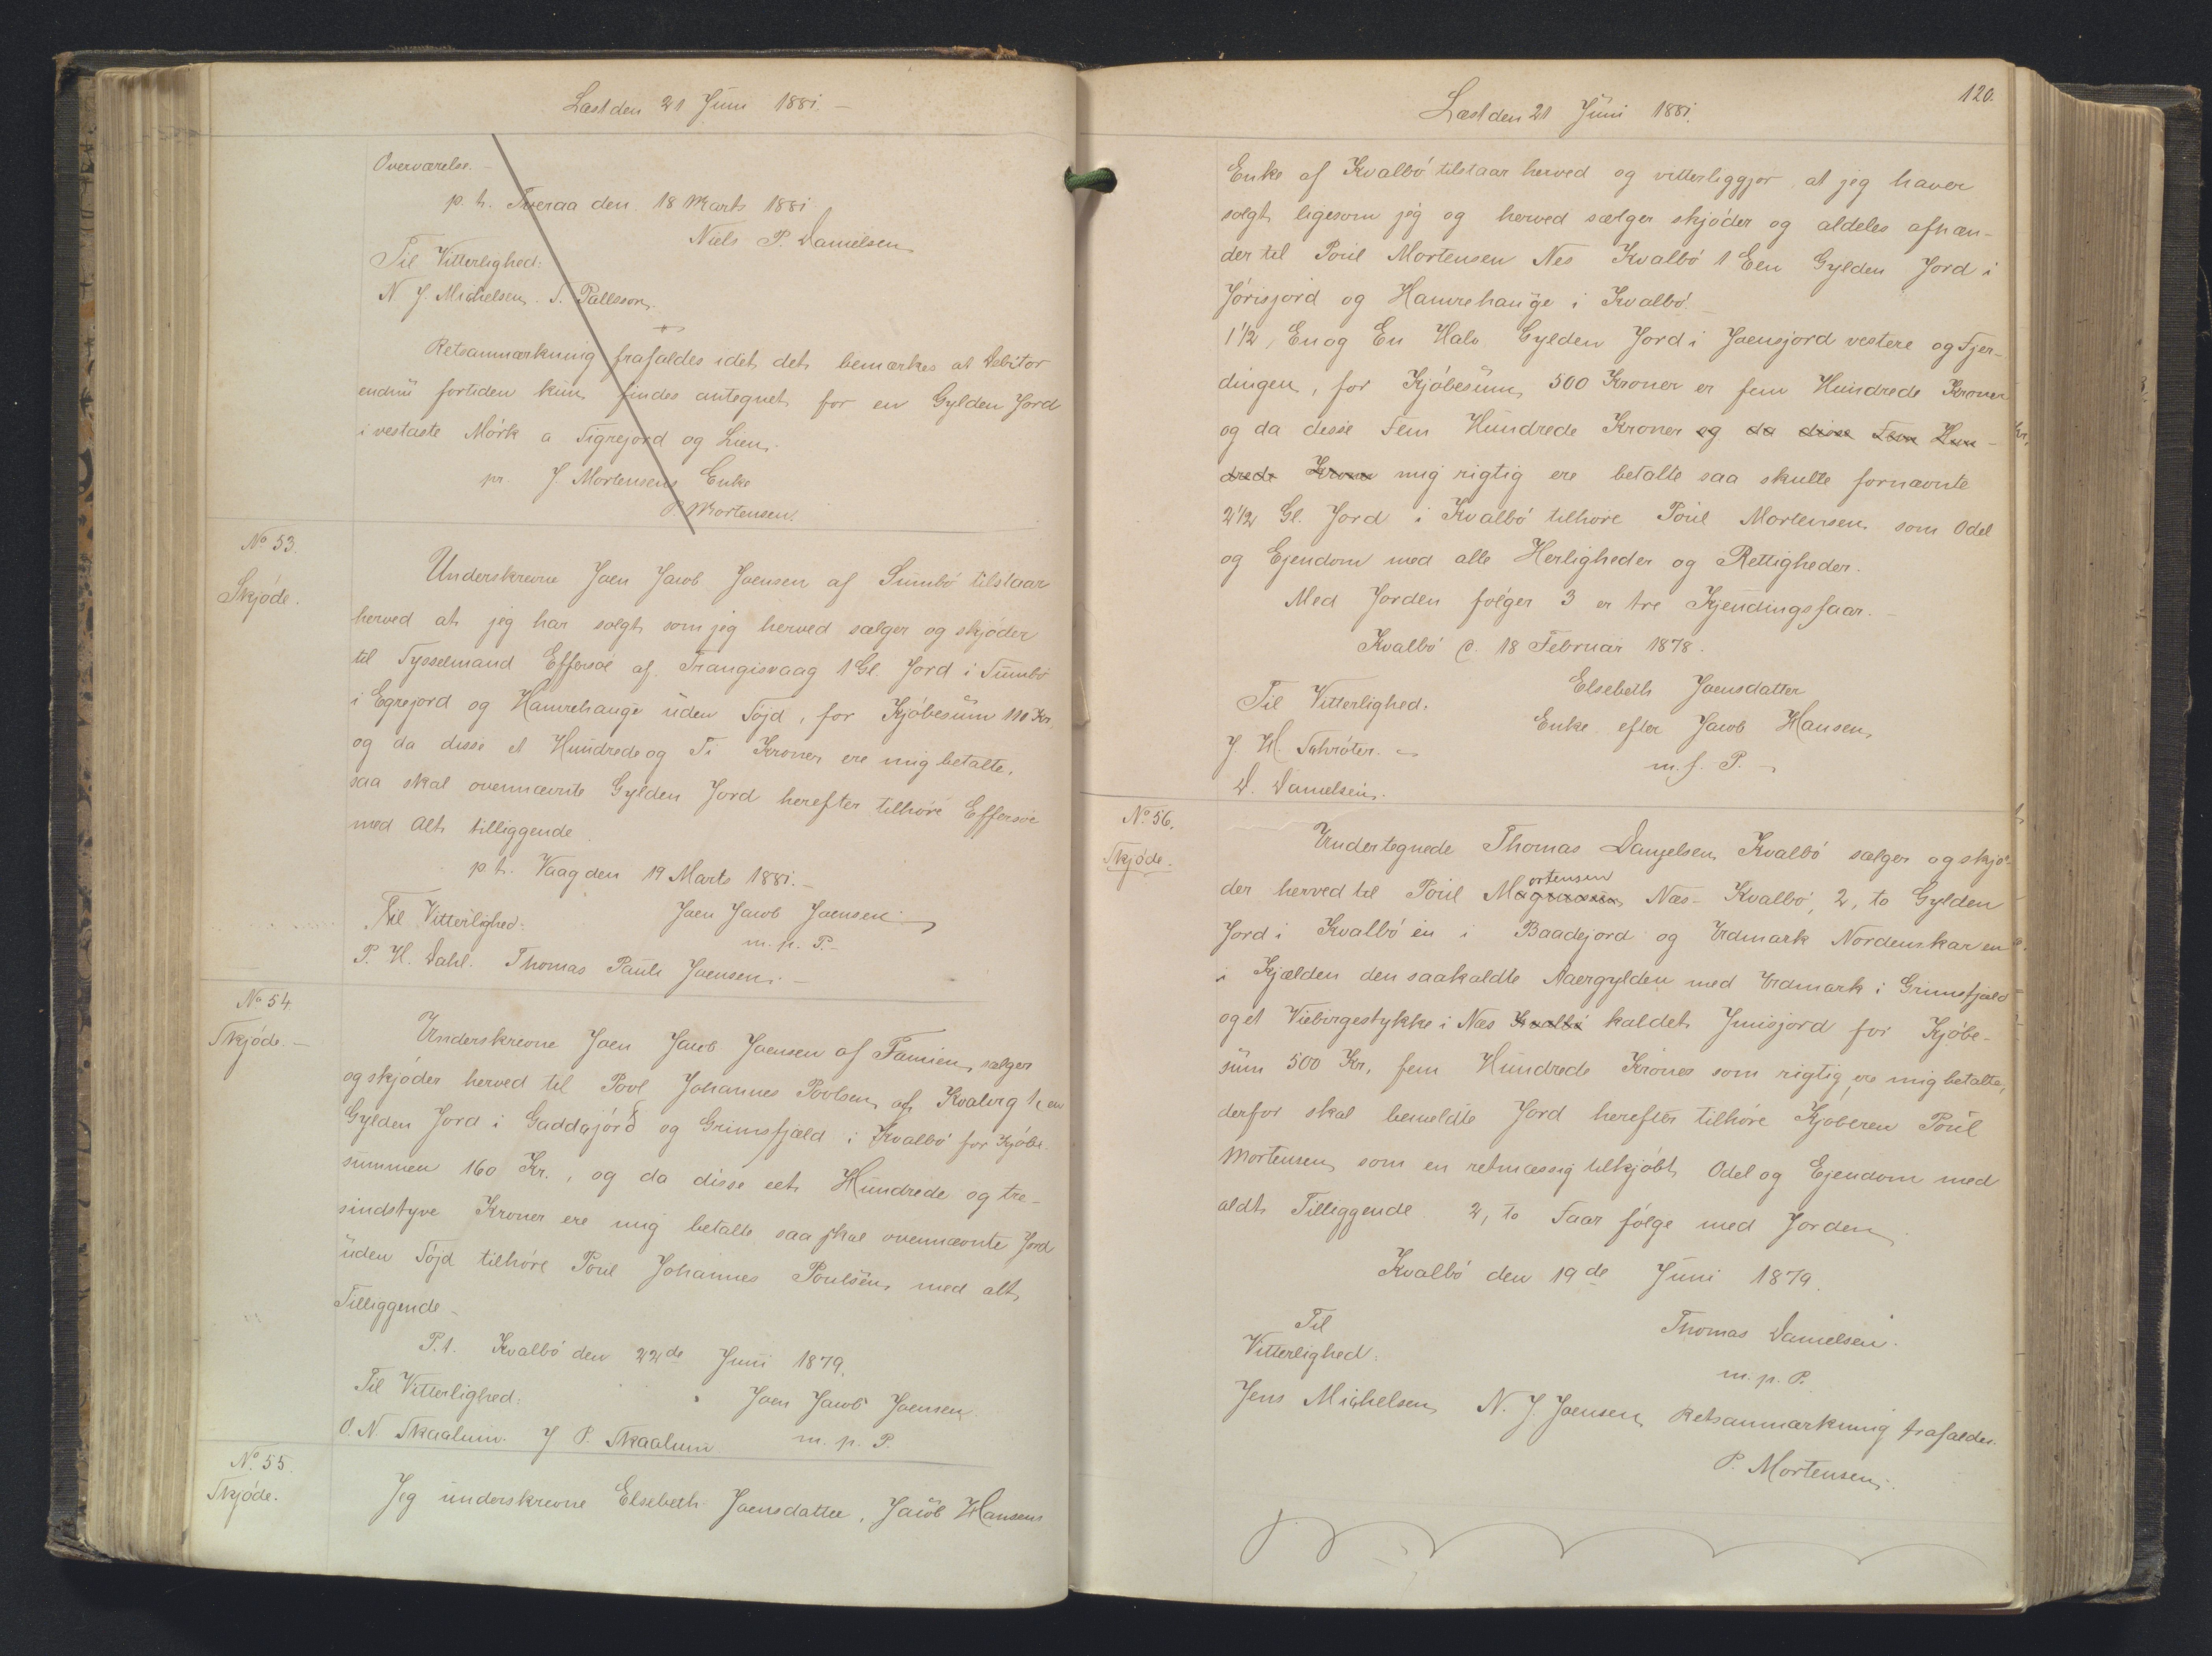 Læst den 21 Juni 1881. –
Overværelse. –
p. t. Tveraa den 18 Marts 1881
Niels P. Danielsen
Til Vitterlighed:
N J. Michelsen. S. Pallsson.
Retsanmærkning frafaldes idet det bemærkes at Debitor
endnu fortiden kun findes antegnet for en Gylden Jord
i vestaste Mørk a Tigrejord og Lien.
pr J. Mortensens Enke
P. Mortensen.
No 53.
Skjøde.
Underskrevne Joen Jacob Joensen af Sumbø tilstaar
herved at jeg har solgt som jeg herved sælger og skjøder
til Sysselmand Effersøe af Trangisvaag 1 Gl. Jord i Sumbø
i Egrejord og Hamrehauge uden Søjd, for Kjøbesum 110 Kr.
og da disse et Hundrede og Ti Kroner ere mig betalte,
saa skal ovennævnte Gylden Jord herefter tilhøre Effersøe
med Alt tilliggende.
p. t. Vaag den 19 Marts 1881. –
Til Vitterlighed:
Joen Jacob Joensen
m. p. P. –
P. H. Dahl. Thomas Pauli Joensen. –
No 54
Skjøde. –
Underskrevne Joen Jacob Joensen af Famien, sælger
og skjøder herved til Povl Johannes Povlsen af Kvalvig 1, en
Gylden Jord i Gaddajørd og Grimsfjæld i Kvalbø for Kjøbe-
summen 160 Kr., og da disse eet Hundrede og tre-
sindstyve Kroner ere mig betalte saa skal ovennævnte Jord
uden Søjd tilhøre Poul Johannes Poulsen med alt
Tilliggende –
P. t. Kvalbø den 22de Juni 1879.
Til Vitterlighed:
Joen Jacob Joensen
O. N. Skaalum. J P. Skaalum
m. p. P.
No. 55.
Skjøde.
Jeg underskrevne Elsebeth Joensdatter, Jacob Hansens
120.
Læst den 21 Juni 1881.
Enke af Kvalbø tilstaar herved og vitterliggjør, at jeg haver
solgt ligesom jeg og herved sælger skjøder og aldeles afhæn-
der til Poul Mortensen Nes Kvalbø 1 Een Gylden Jord i
Jørisjord og Hamrehauge i Kvalbø. –
1 1/2, En og En Halv Gylden Jord i Joensjord vestere og Fjer-
dingen, for Kjøbesum 500 Kroner er fem Hundrede Kroner
og da disse Fem Hundrede Kroner og da disse Fem Hun-
drede Kroner mig rigtig ere betalte saa skulle fornævnte
2 1/2 Gl. Jord i Kvalbø tilhøre Poul Mortensen som Odel
og Ejendom med alle Herligheder og Rettigheder.
Med Jorden følger 3 er tre Kjendingsfaar. –
Kvalbø d. 18 Februar 1878.
Elsebeth Joensdatter
Til Vitterlighed:
Enke efter Jacob Hansen
J. H. Schrøter.
m. f. P. –
D. Danielsen.
No. 56.
Skjøde.
Undertegnede Thomas Danjelsen Kvalbø sælger og skjø-
ortensen
der herved til Poul Magnussen Næs – Kvalbø, 2, to Gylden
Jord i Kvalbø en i Baadejord og Udmark Nordenskar en
i Kjælden den saakaldte Naergylden med Udmark i Grimsfjæld
og et Viebirgestykke i Næs Kvalbø kaldet Jmisjord for Kjøbe-
sum 500 Kr. fem Hundrede Kroner som rigtig ere mig betalte,
derfor skal bemeldte Jord herefter tilhøre Kjøberen Poul
Mortensen som en retmæssig tilkjøbt Odel og Ejendom med
aldt Tilliggende. 2, to Faar følge med Jorden.
Kvalbø den 19de Juni 1879.
Til
Vitterlighed:
Thomas Danielsen.
m. p. P.
Jens Michelsen N. J. Joensen Retsanmærkning frafaldes.
P. Mortensen.